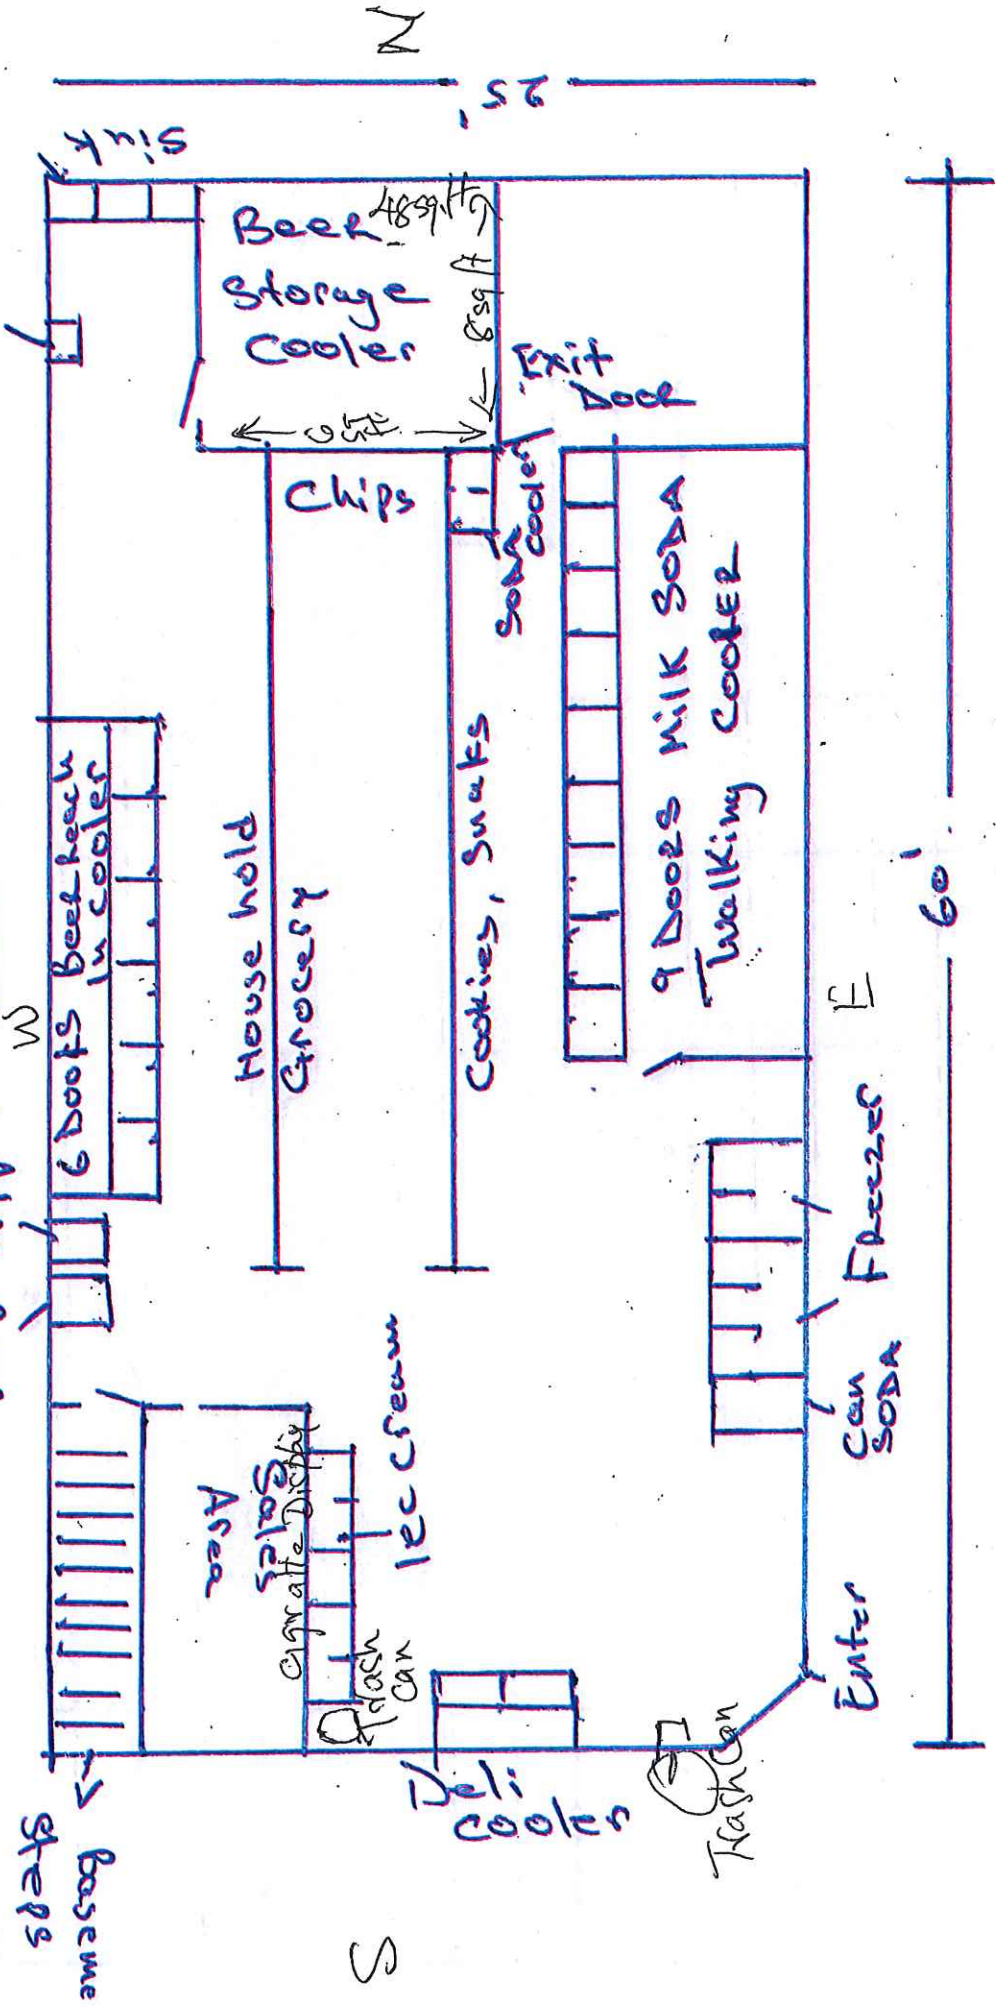 N
25'
Sink
Beer
Storage
Cooler
48sq.ft
8sqft
Exit
Door
Chips
Soda
Cooler
9 Doors Milk SODA
Walking Cooler
6 Doors Beer Reach
In Cooler
W
House hold
Grocery
Cookies, Snaks
E
60'
Freezer
Can
SODA
Iec Cream
Sales
Area
Cigratte Display
Trash
Can
Enter
Deli
cooler
Trash Can
Baseme
Steps
S